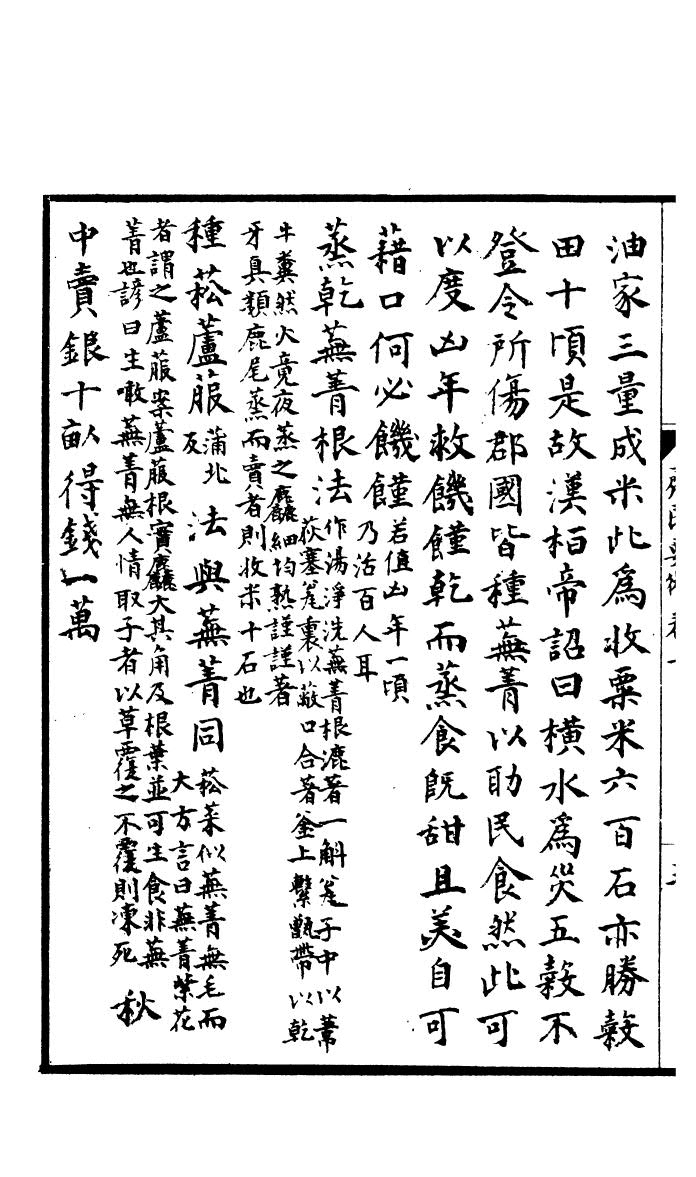 油家三量成米此爲收粟米六百石亦勝穀
田十頃是故漢柏帝詔曰横水爲災五穀不
登令所傷郡國皆種蕪菁以助民食然此可
以度凶年救饑饉乾而蒸食旣甜且美自可
藉口何必饑饉若值凶年一頃
乃活百人耳
蒸乾蕪菁根法作湯淨洗蕪菁根漉著一斛瓮子中以葦
荻塞瓮裏以蔽口合著釜上繫甑帶以乾
牛糞然火竟夜蒸之麤細均熟謹謹著
牙真類鹿尾蒸而賣者則收米十石也
種菘蘆菔蒲北
反法與蕪菁同菘菜似蕪菁無毛而
大方言曰蕪菁紫花
者謂之蘆菔案蘆菔根實麤大其角及根葉並可生食非蕪
菁也諺曰生噉蕪菁無人情取子者以草覆之不覆則凍死秋
中賣銀十畝得錢一萬